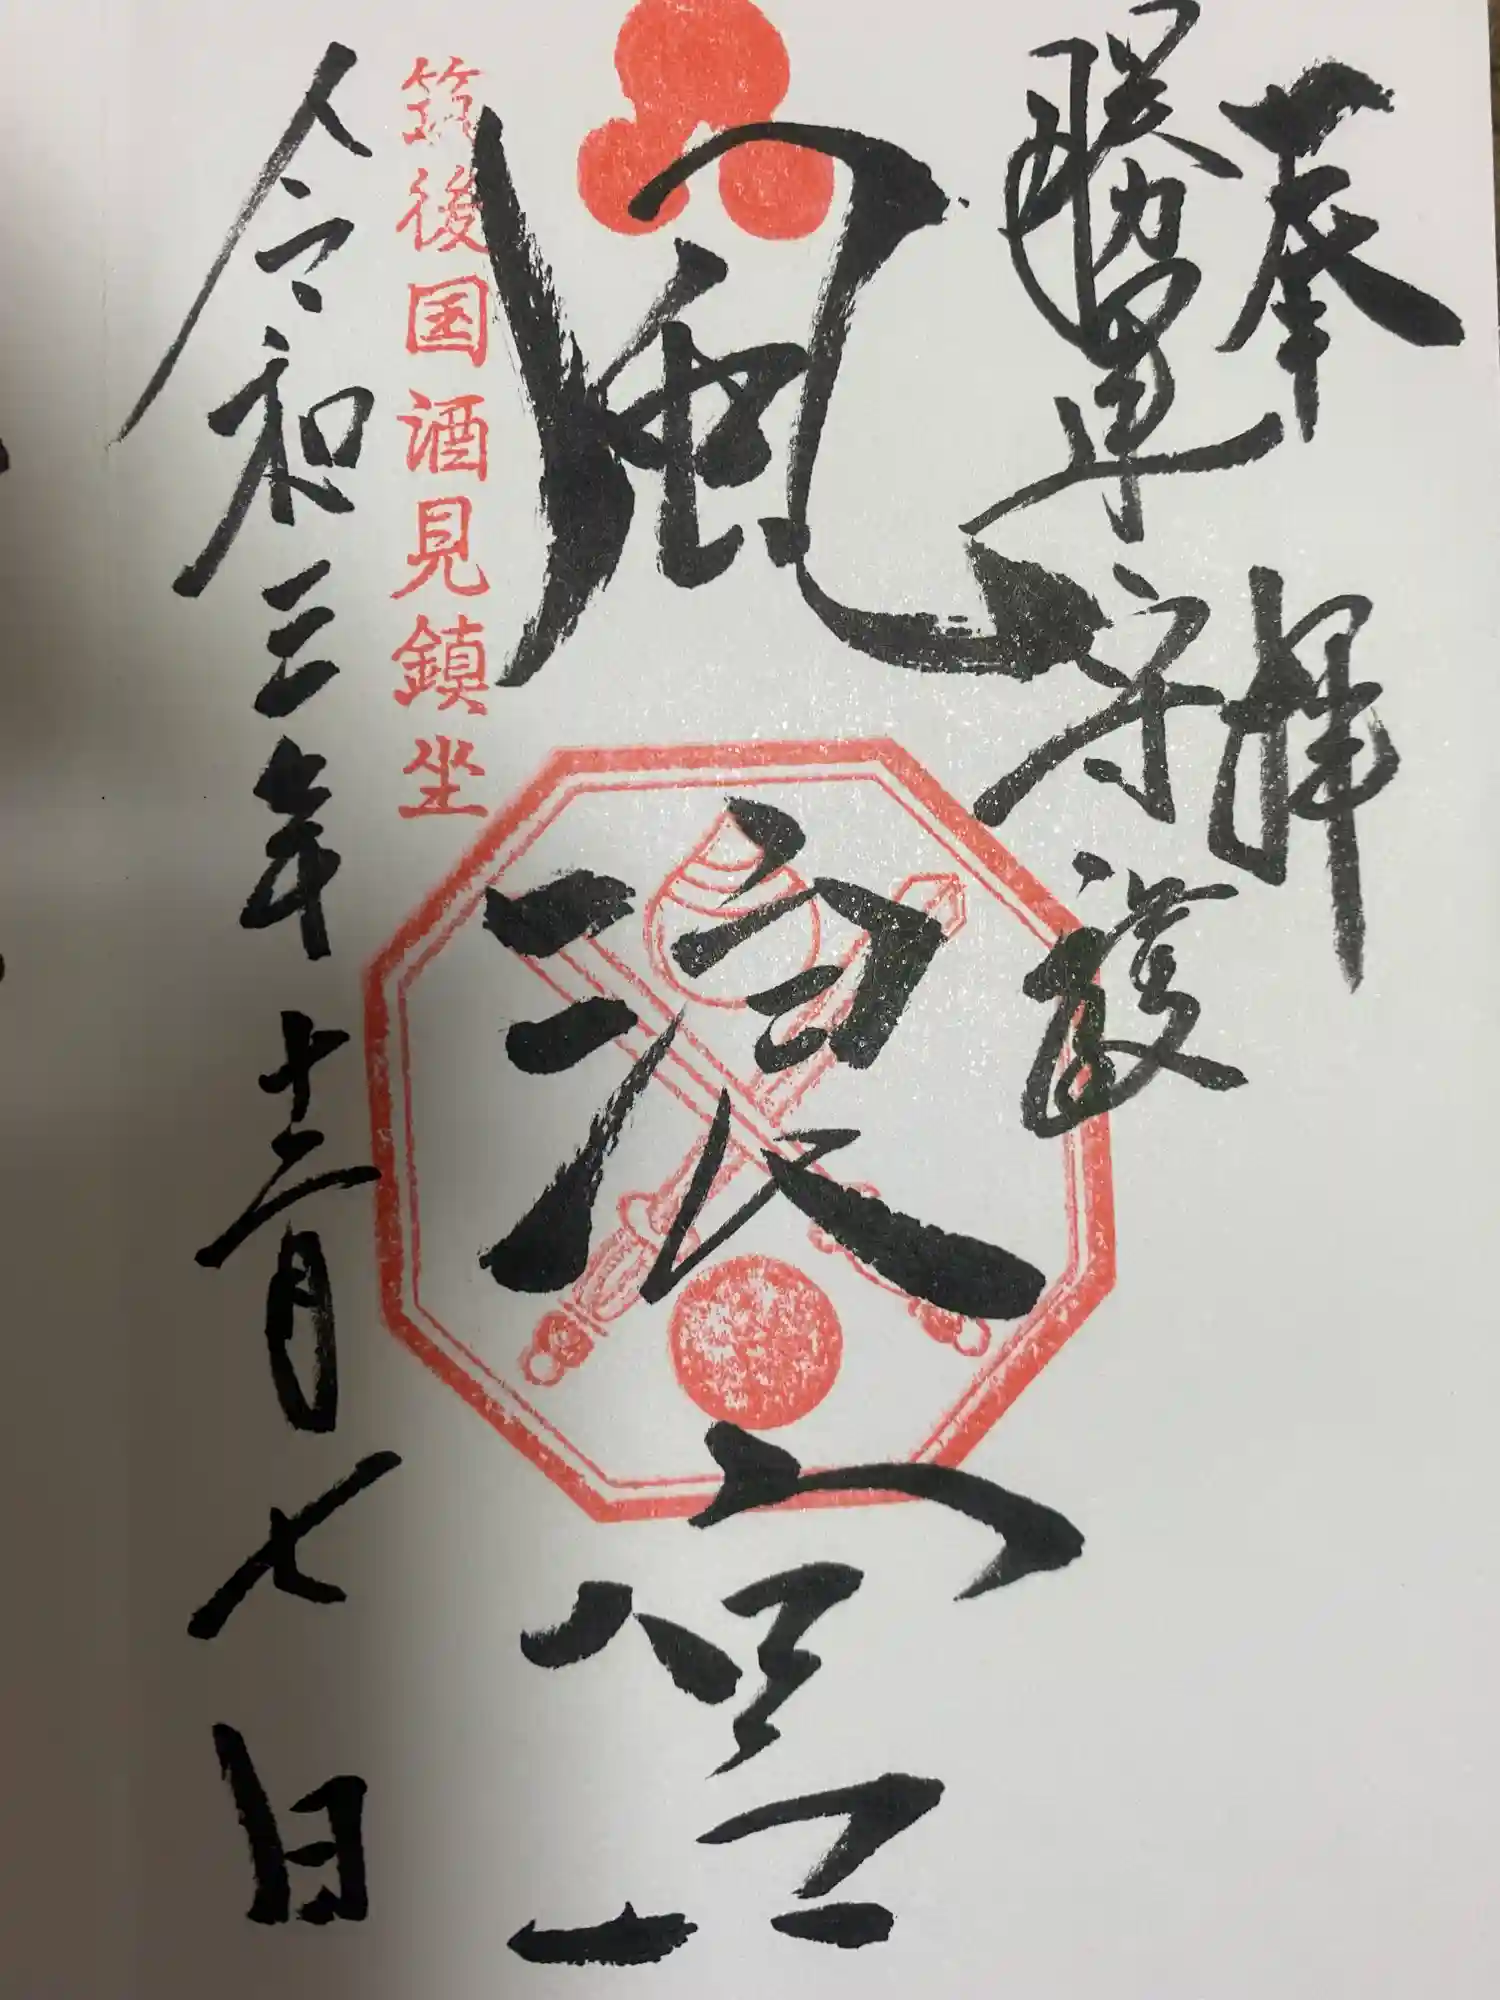 奉拝
勝運守護
風浪宮
筑後国酒見鎮坐
令和三年十二月七日